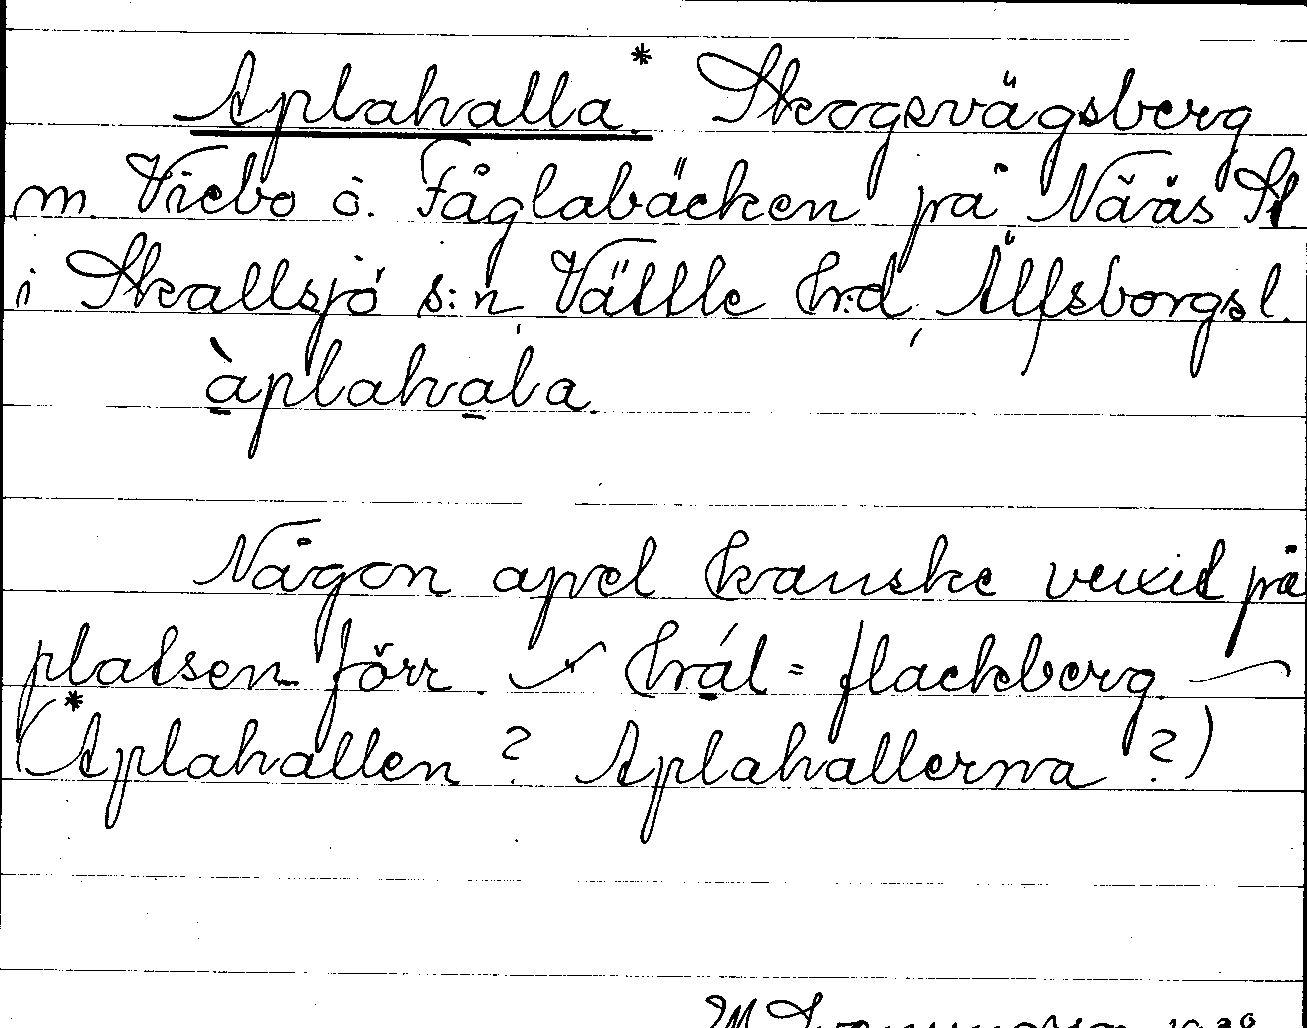 Aplahalla.* Skogsvägsberg
m. Viebo o. Fåglabäcken på Nääs
i Skallsjö s:n, Vättle hrd, Älfsborgsl.
àplahala.
Någon apel kanske vuxit på
platsen förr. hál = flackberg.
(*Aplahallen? Aplahallerna?)